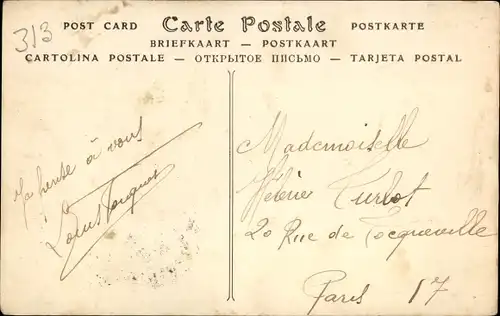 313
POST CARD Carte Postale POSTKARTE
BRIEFKAART — POSTKAART
CARTOLINA POSTALE — ОТКРЫТОЕ ПИСЬМО — TARJETA POSTAL
à vous
Louis
Mademoiselle
Hélène Turlot
20 Rue de Tocqueville
Paris 17